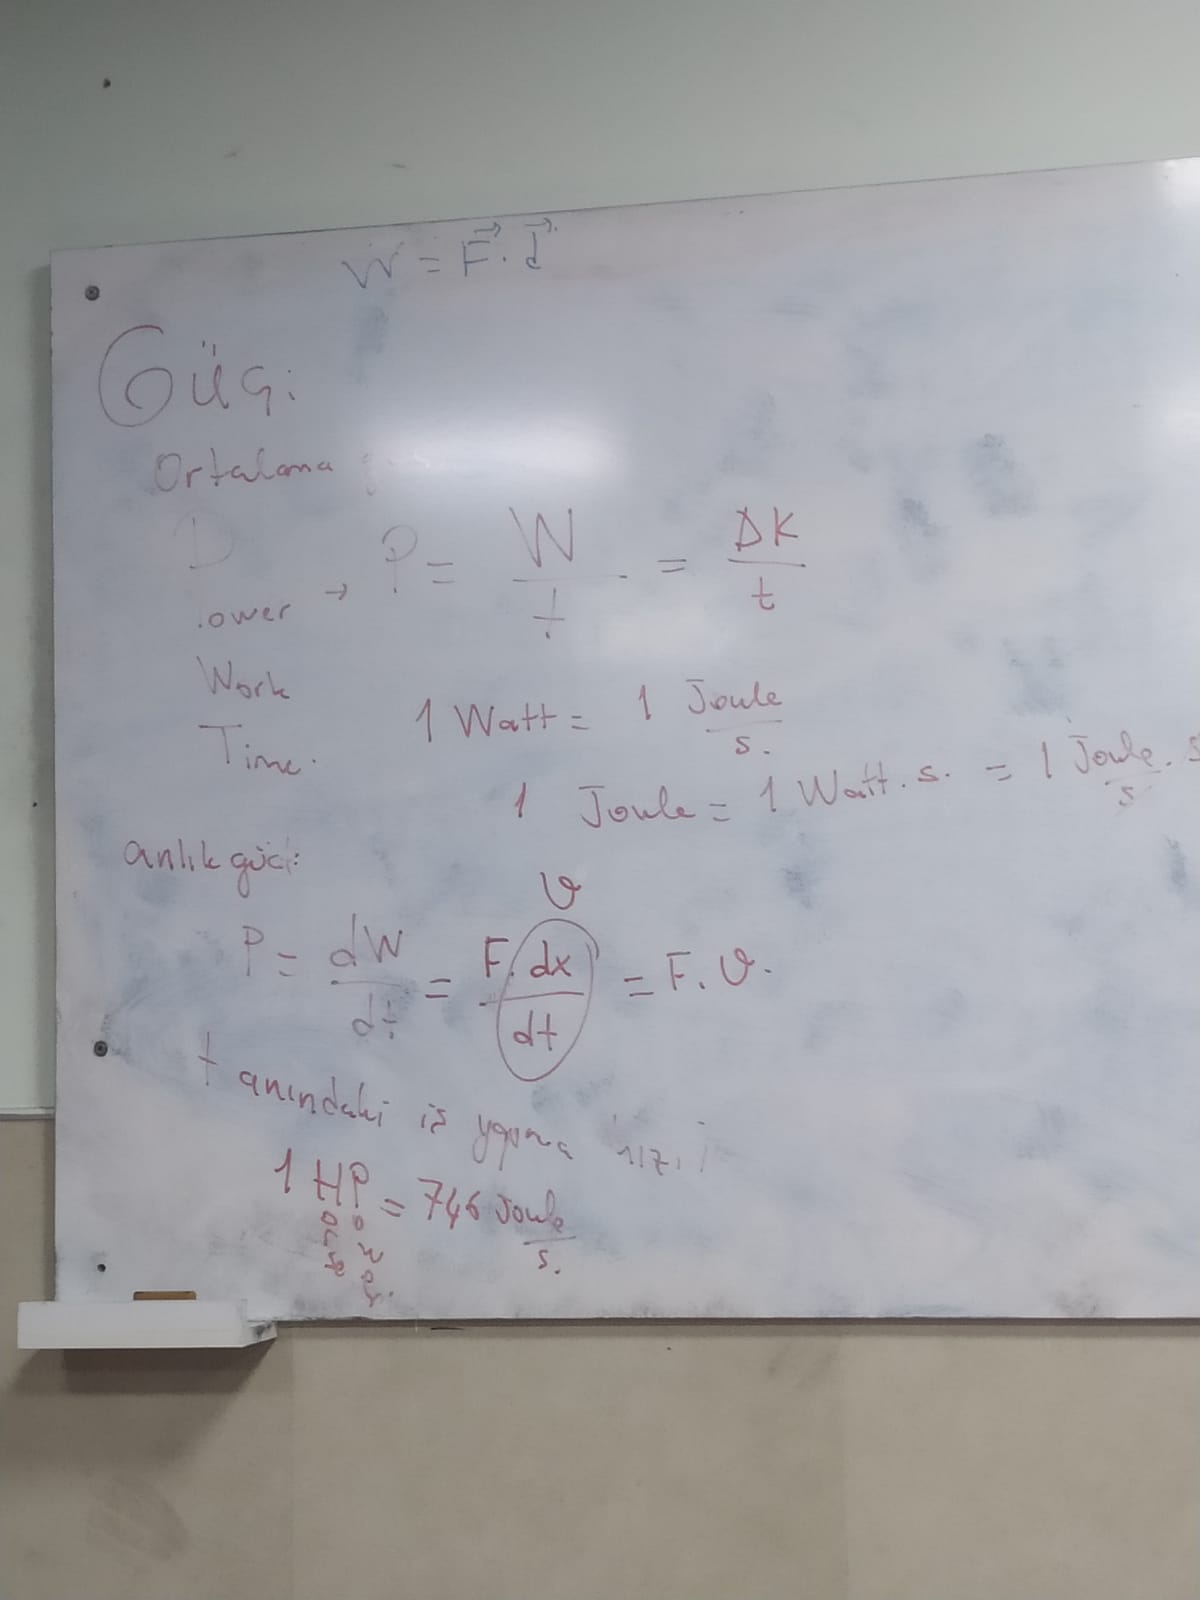 W = F⃗ . d⃗
Güç:
Ortalama
Power → P = W/t = ΔK/t
Work
Time.
1 Watt = 1 Joule/s.
1 Joule = 1 Watt . s. = 1 Joule/s . s
anlık güç:
P = dW/dt = F. dx/dt = F. v.
v
t anındaki iş yapma hızı
1 HP = 746 Joule/s.